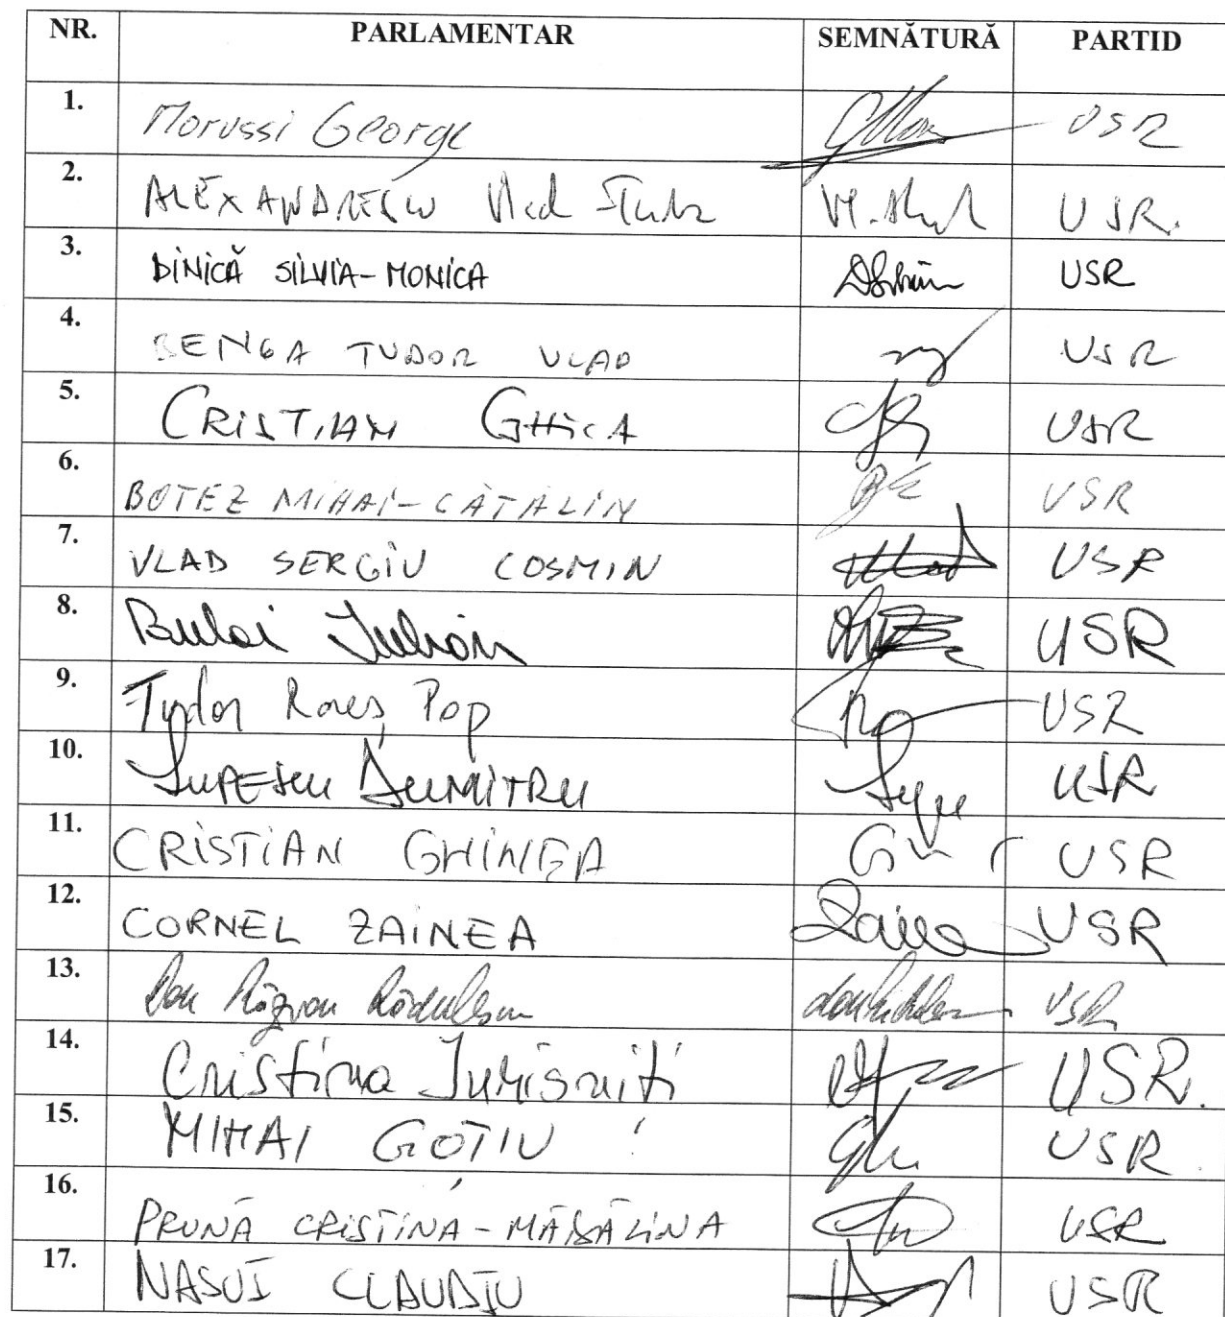 NR. PARLAMENTAR SEMNĂTURĂ PARTID
1. Morussi George USR
2. ALEXANDRESCU Vlad Tudor USR.
3. DINICĂ SILVIA-MONICA USR
4. BENGA TUDOR VLAD USR
5. CRISTIAN GHICA USR
6. BOTEZ MIHAI-CĂTĂLIN USR
7. VLAD SERGIU COSMIN USR
8. Bulai Iulian USR
9. Tudor Rareș Pop USR
10. LUPESCU DUMITRU USR
11. CRISTIAN GHINEA USR
12. CORNEL ZAINEA USR
13. Dan Răzvan Rădulescu USR
14. Cristina Iurișniți USR.
15. MIHAI GOȚIU USR
16. PRUNĂ CRISTINA-MĂDĂLINA USR
17. NASUI CLAUDIU USR